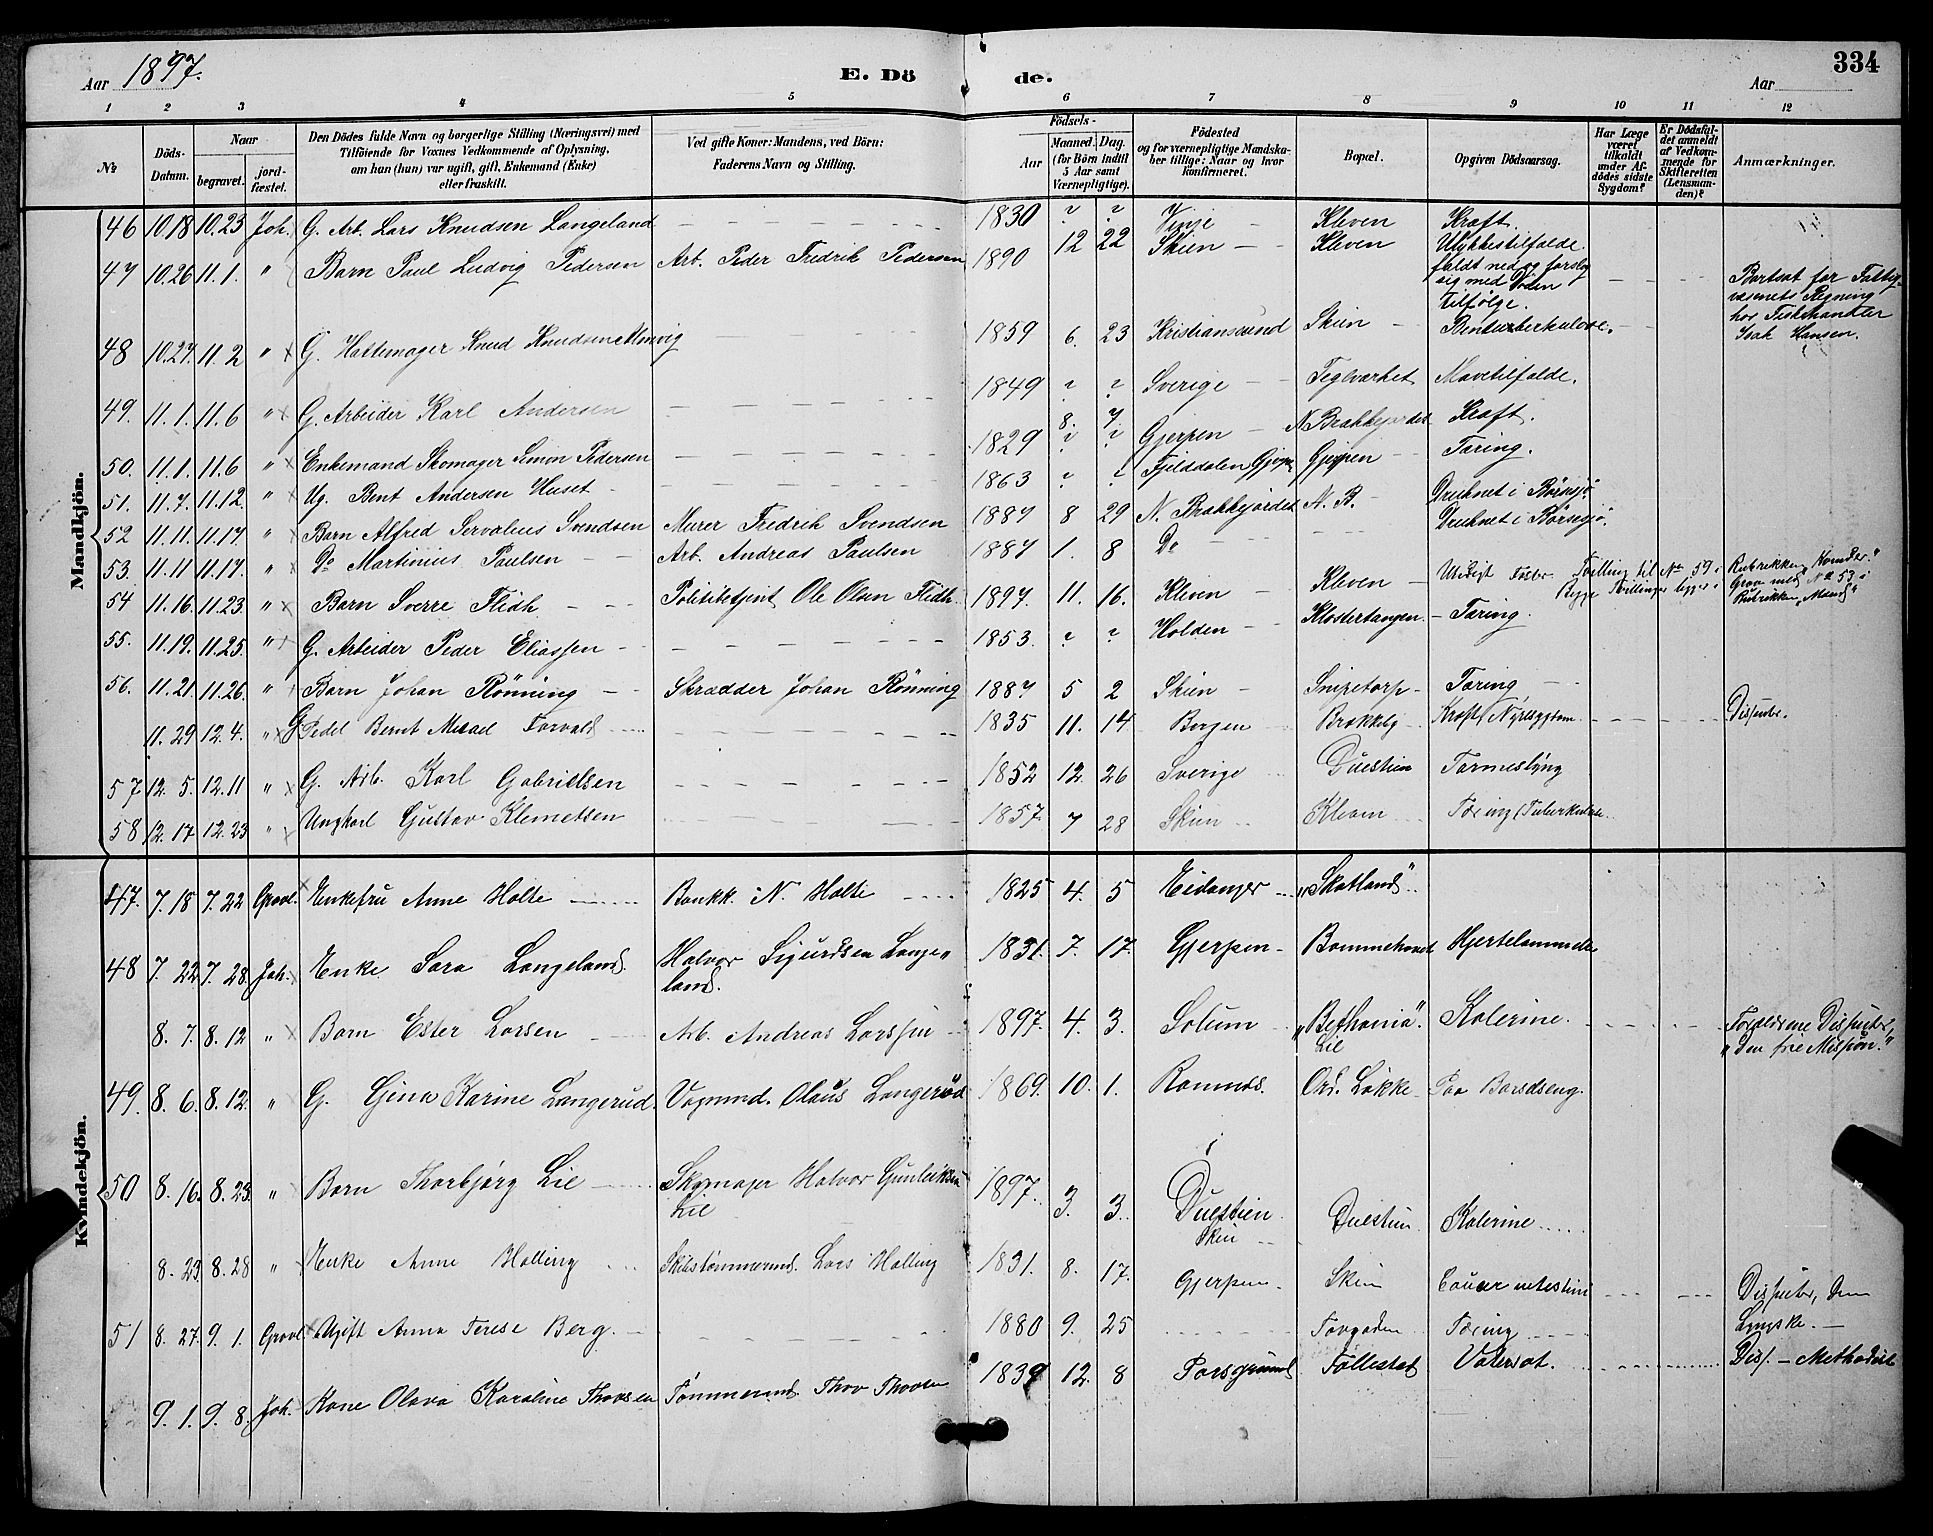 Aar 1897. E. Dö de. Aar 334
1 2 3 4 5 6 7 8 9 10 11 12
№ Döds-Datum. Naar begravet. jord-fæstet. Den Dödes fulde Navn og borgerlige Stilling (Næringsvei) med Tilföiende for Voxnes Vedkommende af Oplysning, om han (hun) var ugift, gift, Enkemand (Enke) eller fraskilt. Ved gifte Koner: Mandens, ved Börn: Faderens Navn og Stilling. Födsels- Aar Maaned. Dag. (for Börn indtil 5 Aar samt Værnepligtige). Födested og for værnepligtige Mandskaber tillige: Naar og hvor konfirmeret. Bopæl. Opgiven Dödsaarsag. Har Læge været tilkaldt under Afdödes sidste Sygdom? Er Dödsfaldet anmeldt af Vedkommende for Skifteretten (Lensmanden)? Anmærkninger.
Mandkjön.
46 10.18 10.23 Joh. G. Arb. Lars Knudsen Langeland 1830 ? ? Vinje Kleven Kræft.
47 10.26 11.1. " Barn Paul Ludvig Pedersen Arb. Peder Fredrik Pedersen 1890 12 22 Skien Kleven Ulykkestilfælde. faldt ned og forslog sig med Döden tilfølge. Bortsat for Fattigvæsenets Regning hos Fiskehandler Isak Hansen.
48 10.27. 11.2 " G. Hattemager Knud Knudsen 1859 6. 23 Kristianssund Skien Bentuberkulose.
49. 11.1. 11.6 " G. Arbeider Karl Andersen 1849 ? ? Sverige Teglværket Mavetilfælde.
50. 11.1. 11.6 " Enkemand Skomager Simon Pedersen 1829 8. 7. ? ? Gjerpen N. Brækkejordet Kræft.
51. 11.7. 11.12. " Ug. Bent Andersen Huset 1863 ? ? Fjelddalen Gjerpen Gjerpen Tæring.
52 11.11. 11.17 " Barn Alfred Servalius Svendsen Murer Fredrik Svendsen 1887 8 29 N. Brækkejordet N. B. Druknet i Børsesjø
53. 11.11 11.17. " Do Martinius Paulsen Arb. Andreas Paulsen 1887 1. 8 Do Druknet i Børsesjø.
54 11.16. 11.23. " Barn Sverre Flidh Politibetjent Ole Olsen Flidh. 1897. 11. 16. Kleven Kleven Tvilling til No 59 i Rubrikken "Kvinder." Begge Tvillinger ligger i Grav med No 53 i Rubrikken "Mænd"
55. 11.19. 11.25. " G. Arbeider Peder Eliassen 1853. ? ? Holden Klostertangen Tæring.
56. 11.21. 11.26. " Barn Johan Rönning Skrædder Johan Rönning 1887 5 2 Skien Snipetorp Tæring
11.29 12.4. " G Pedel Bernt Torvald 1835 11. 14 Bergen Brækkeby Kræft (Nyresygdom Dissenter.
57 12.5. 12.11 " G. Arb. Karl Gabrielsen 1852 12. 26 Sverige Duestien Tarmeslyng
58 12.17 12.23 " Ungkarl Gustav Klemetsen 1857. 7 28 Skien Kleven Tæring (Tuberkulose
Kvindekjön.
47. 7.18 7.22 Gravl. Enkefru Anne Holte Bankk. N. Holte 1825 4. 5 Eidanger "Skatland"
48 7.22 7.28. Joh. Enke Sara Langeland. Halvor Sigurdsen Langeland. 1831. 7. 17. Gjerpen Bommehaven Hjertelammelse
8.7. 8.12 " Barn Ester Larsen Arb. Andreas Larssen 1897. 4. 3. Solum "Bethania". Lie Kolerine. Forældrene Dissentere, "den frie Mission."
49. 8.6. 8.12. " G. Gina Karine Langerud. Vognmd. Olaus Langerud 1869. 10. 1. Ramnæs. Ovr. Løkke Paa Barselseng.
50 8.16. 8.23. " Barn Thorbjørg Lie Skomager Halvor Gunleiksen Lie 1897. 3. 3. Duestien Skien Duestien Kolerine
8.23 8.28 " Enke Anne Halling Skibstømmermd. Lars Halling 1831. 8. 17. Gjerpen Skien Cancer intestini Dissenter, den Lyngske.
51 8.27. 9.1. Gravl. Ugift Anna Terese Berg. 1880 9. 25 Torvgaden Tæring
9.1. 9.8. Joh. Kone Olava Karoline Thorsen Tømmermd. Thor Thorsen 1839 12. 8 Porsgrund Follestad Vatersot. Diss. - Methodist